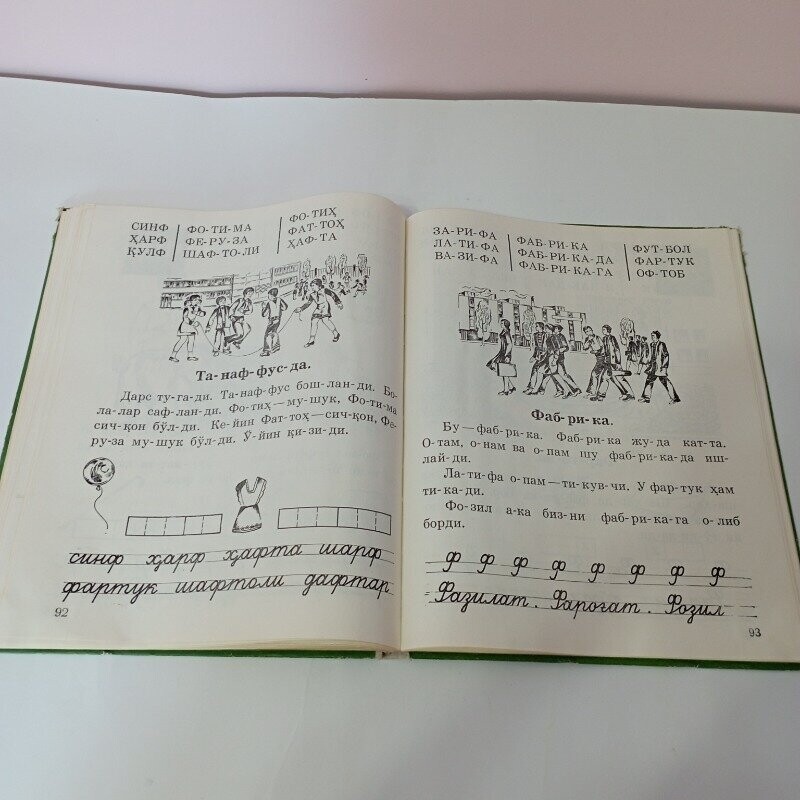 СИНФ ФО-ТИ-МА ФО-ТИҲ
ҲАРФ ФЕ-РУ-ЗА ФАТ-ТОҲ
ҚУЛФ ШАФ-ТО-ЛИ ҲАФ-ТА
Та-наф-фус-да.
Дарс ту-га-ди. Та-наф-фус бош-лан-ди. Бо-
ла-лар саф-лан-ди. Фо-тиҳ—му-шук, Фо-ти-ма
сич-қон бўл-ди. Ке-йин Фат-тоҳ—сич-қон, Фе-
ру-за му-шук бўл-ди. Ў-йин қи-зи-ди.
синф ҳарф ҳафта шарф
фартук шафтоли дафтар
92
ЗА-РИ-ФА ФАБ-РИ-КА ФУТ-БОЛ
ЛА-ТИ-ФА ФАБ-РИ-КА-ДА ФАР-ТУК
ВА-ЗИ-ФА ФАБ-РИ-КА-ГА ОФ-ТОБ
Фаб-ри-ка.
Бу—фаб-ри-ка. Фаб-ри-ка жу-да кат-та.
О-там, о-нам ва о-пам шу фаб-ри-ка-да иш-
лай-ди.
Ла-ти-фа о-пам—ти-кув-чи. У фар-тук ҳам
ти-ка-ди.
Фо-зил а-ка биз-ни фаб-ри-ка-га о-либ
борди.
ф ф ф ф ф ф ф ф
Фазилат. Фароғат. Фозил
93